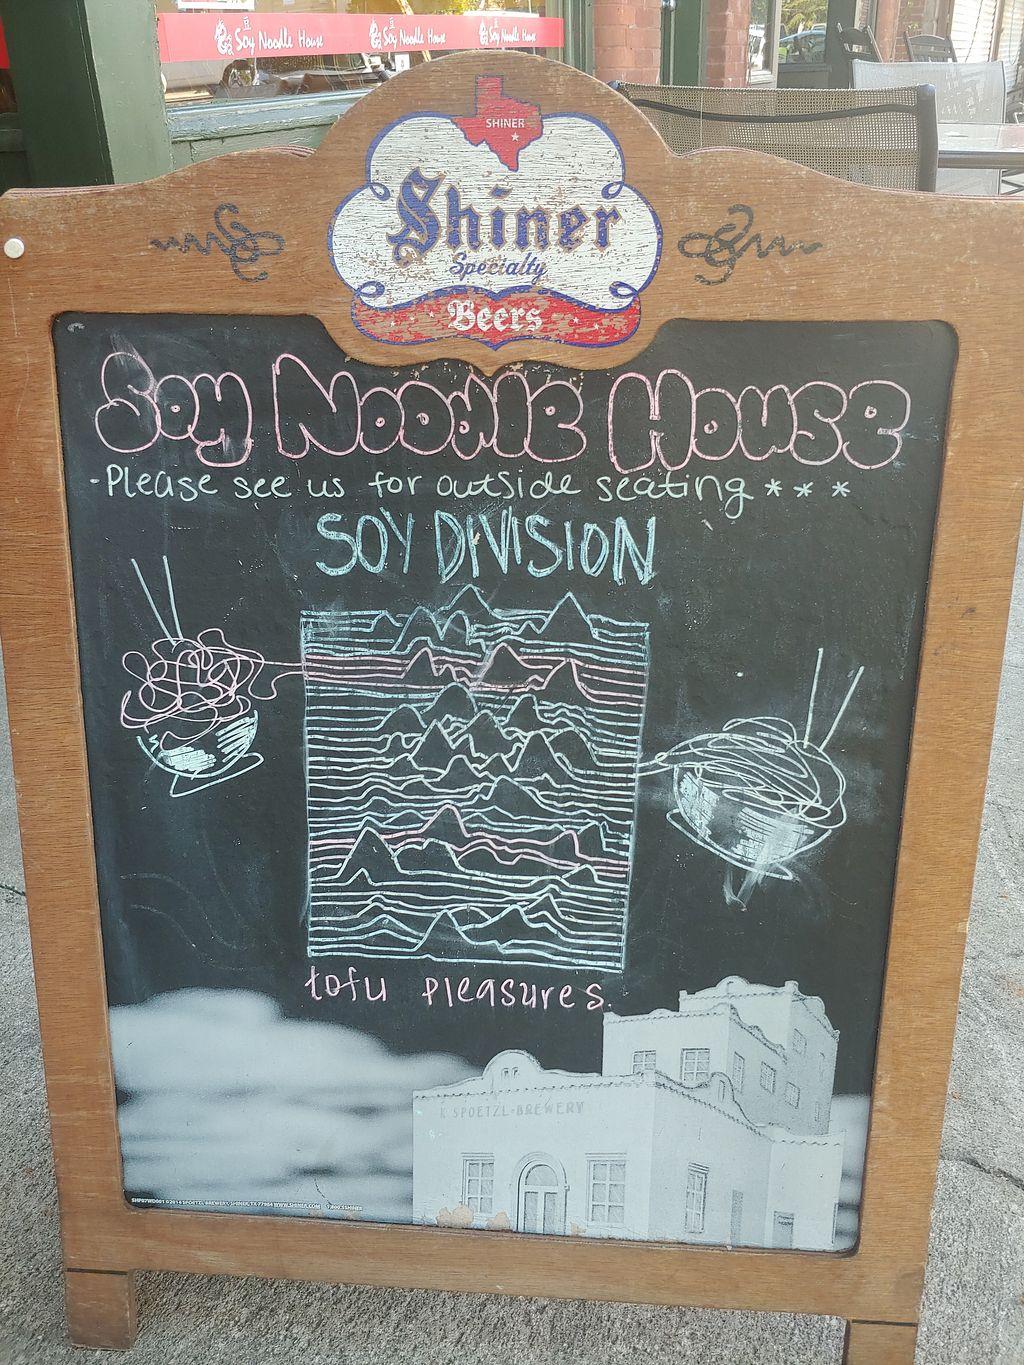 Soy Noodle House Soy Noodle House Soy Noodle House
SHINER
Shiner
Specialty
Beers
Soy Noodle House
- Please see us for outside seating * * *
SOY DIVISION
tofu pleasures.
K SPOETZL BREWERY